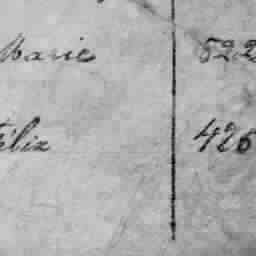 Marie 522
Félix 426